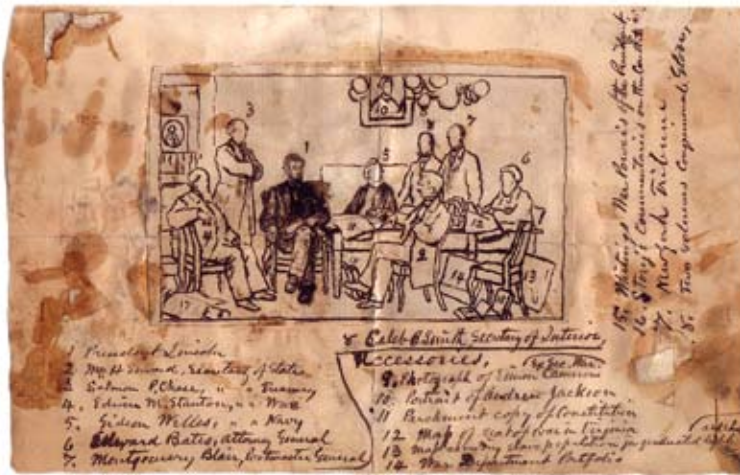 3
1
5
8
7
6
10
4
2
12
14
13
17
1 President Lincoln
2 Wm H Seward, Secretary of State
3 Salmon P. Chase, " " Treasury
4. Edwin M. Stanton, " " War
5. Gideon Welles, " " Navy
6 Edward Bates, Attorney General
7. Montgomery Blair, Postmaster General
8 Caleb B Smith Secretary of Interior
Accessories,
9. Photograph of Simon Cameron
10. Portrait of Andrew Jackson
11 Parchment copy of Constitution
12 Map of seat of war in Virginia
13 map showing slave population in graduated
14 War Department Portfolio
15. Whitings War Powers of the President
16. Story's Commentaries on the
17. New York Tribune
18. Two volumes Congressional Globe,